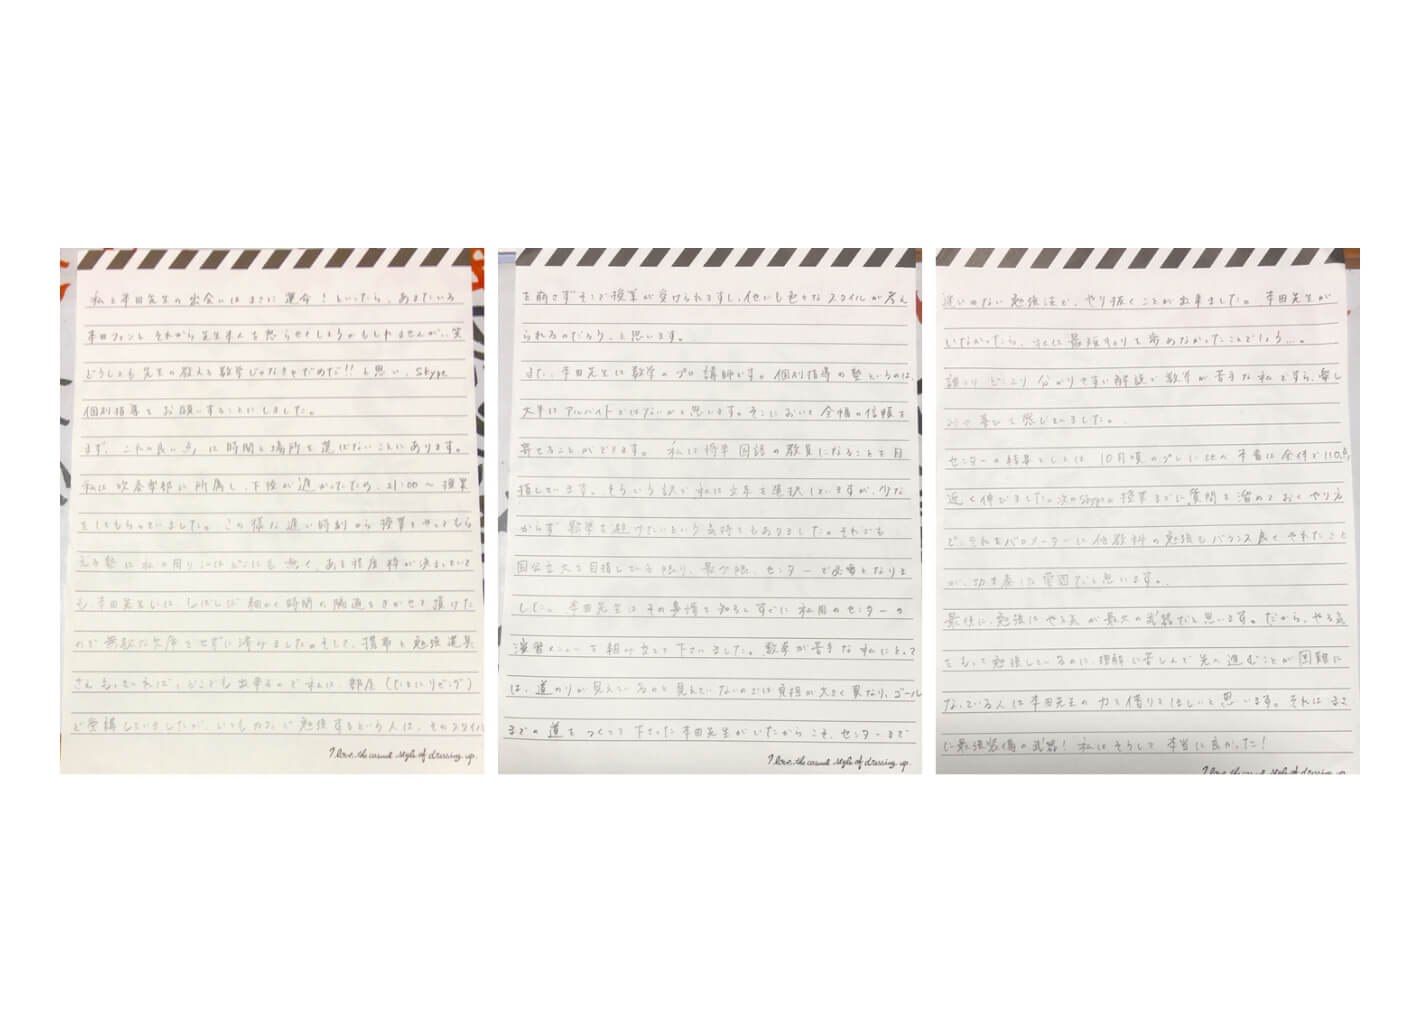 私と本田先生の出会いはまさに運命！といったら、あまたいる
本田ファンと それから先生本人を怒らせてしまうかもしれませんが…笑
どうしても先生の教える数学じゃなきゃだめだ!!と思い、Skype
個別指導をお願いすることにしました。
まず、これの良い点は時間と場所を選ばないことにあります。
私は吹奏楽部に所属し、下校が遅かったため、21:00〜授業
をしてもらっていました。この様な遅い時刻から授業をやってもら
える塾は私の周りにはどこにも無く、ある程度枠が決まっていて
も本田先生には しばしば細かく時間の融通をきかせて頂けた
ので無駄な欠席をせずに済みました。そして、携帯と勉強道具
さえもっていれば、どこでも出来るので私は、部屋(たまにリビング)
で受講していましたが、いつもカフェで勉強するという人は、そのスタイル
I love the casual style of dressing up.
を崩さずそこで授業が受けられますし、他にも色々なスタイルが考え
られるのだろう、と思います。
また、本田先生は数学のプロ講師です。個別指導の塾というのは、
大半はアルバイトではないかと思います。そこにおいて全幅の信頼を
寄せることができます。私は将来国語の教員になることを目
指しています。そういう訳で私は文系を選択していますが、少な
からず数学を避けたいという気持ちもありました。それでも
国公立大を目指している限り、最少限、センターで必要となりま
した。本田先生はその事情を知るとすぐに私用のセンターの
演習メニューを組み立てて下さいました。数学が苦手な私にとって
は、道のりが見えているのと見えていないのでは負担が大きく異なり、ゴール
までの道をつくって下さった本田先生がいたからこそ、センターまで
I love the casual style of dressing up.
迷いのない勉強法で、やり抜くことが出来ました。本田先生が
いなかったら、私は最短ルートを歩めなかったことでしょう…。
誰より どこより 分かりやすい解説で数学が苦手な私ですら、楽し
みの事として感じていました。
センターの結果としては 10月頃のプレに比べ 本番は全体で110点
近く伸びました。次のSkypeの授業までに質問を溜めておくやり方
で、それをバロメーターに他教科の勉強もバランス良くやれたこと
が、功を奏した要因だと思います。
最後に、勉強はやる気が最大の武器だと思います。だから、やる気
をもって勉強しているのに、理解に苦しんで先に進むことが困難に
なっている人は本田先生の力を借りてほしいと思います。それはまさ
に最強装備の武器！私はそうして本当に良かった！
I love the casual style of dressing up.